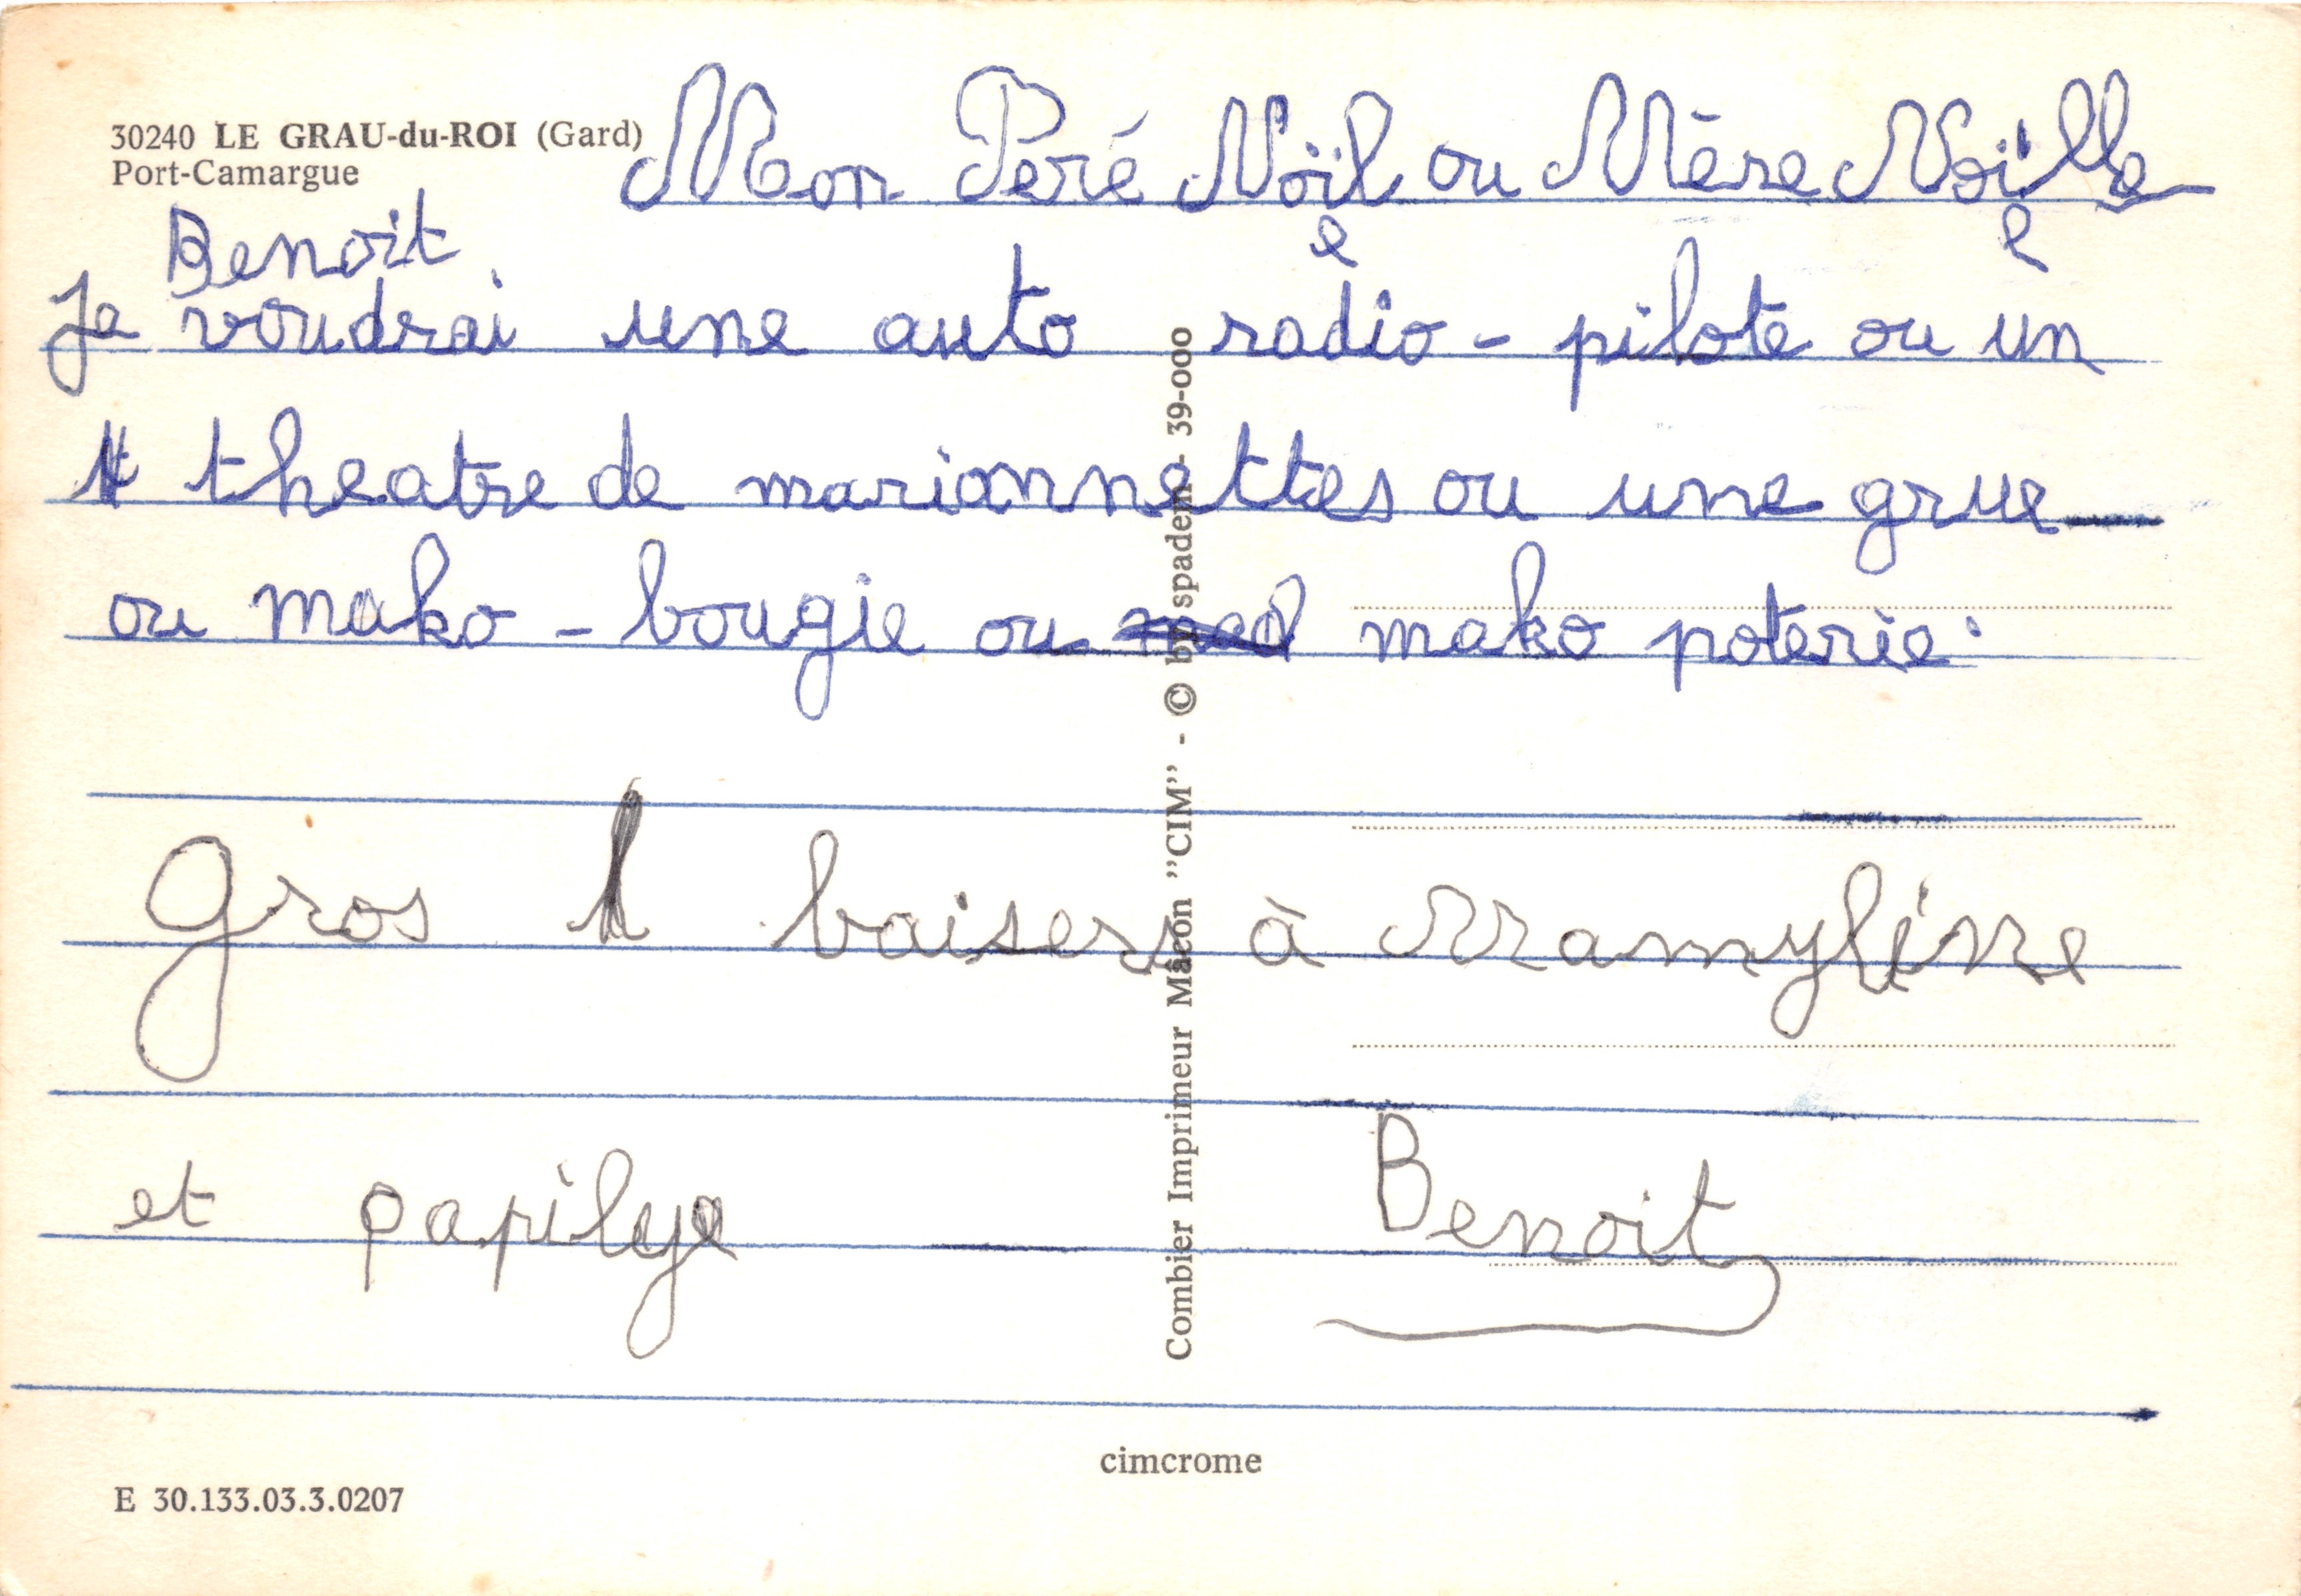 30240 LE GRAU-du-ROI (Gard)
Port-Camargue
Mon Peré Noïl ou Mère Noïlle
e e
Benoit
Je voudrai une auto radio - pilote ou un
theatre de marionnettes ou une grue
ou mako - bougie ou mako poterie.
Gros baisers à Mamyléne
et papilye
Benoit
Combier Imprimeur Mâcon "CIM" - © by spadem - 39-000
cimcrome
E 30.133.03.3.0207